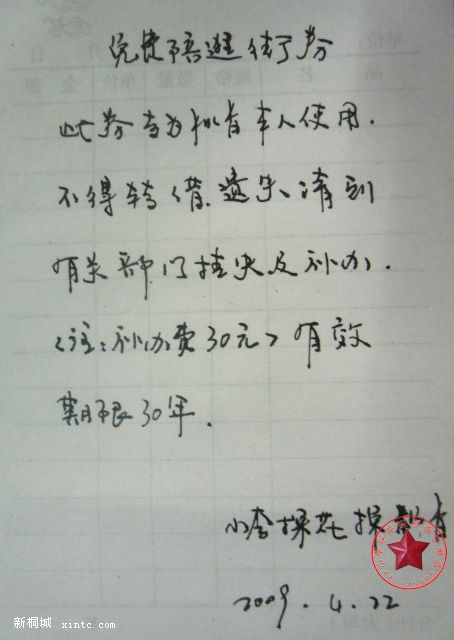 免费陪逛街券
此券当为机有本人使用.
不得转借.遗失请到
有关部门挂失及补办.
<注:补办费30元>有效
期限30年.
小李探花
2009.4.22
新桐城 xintc.com